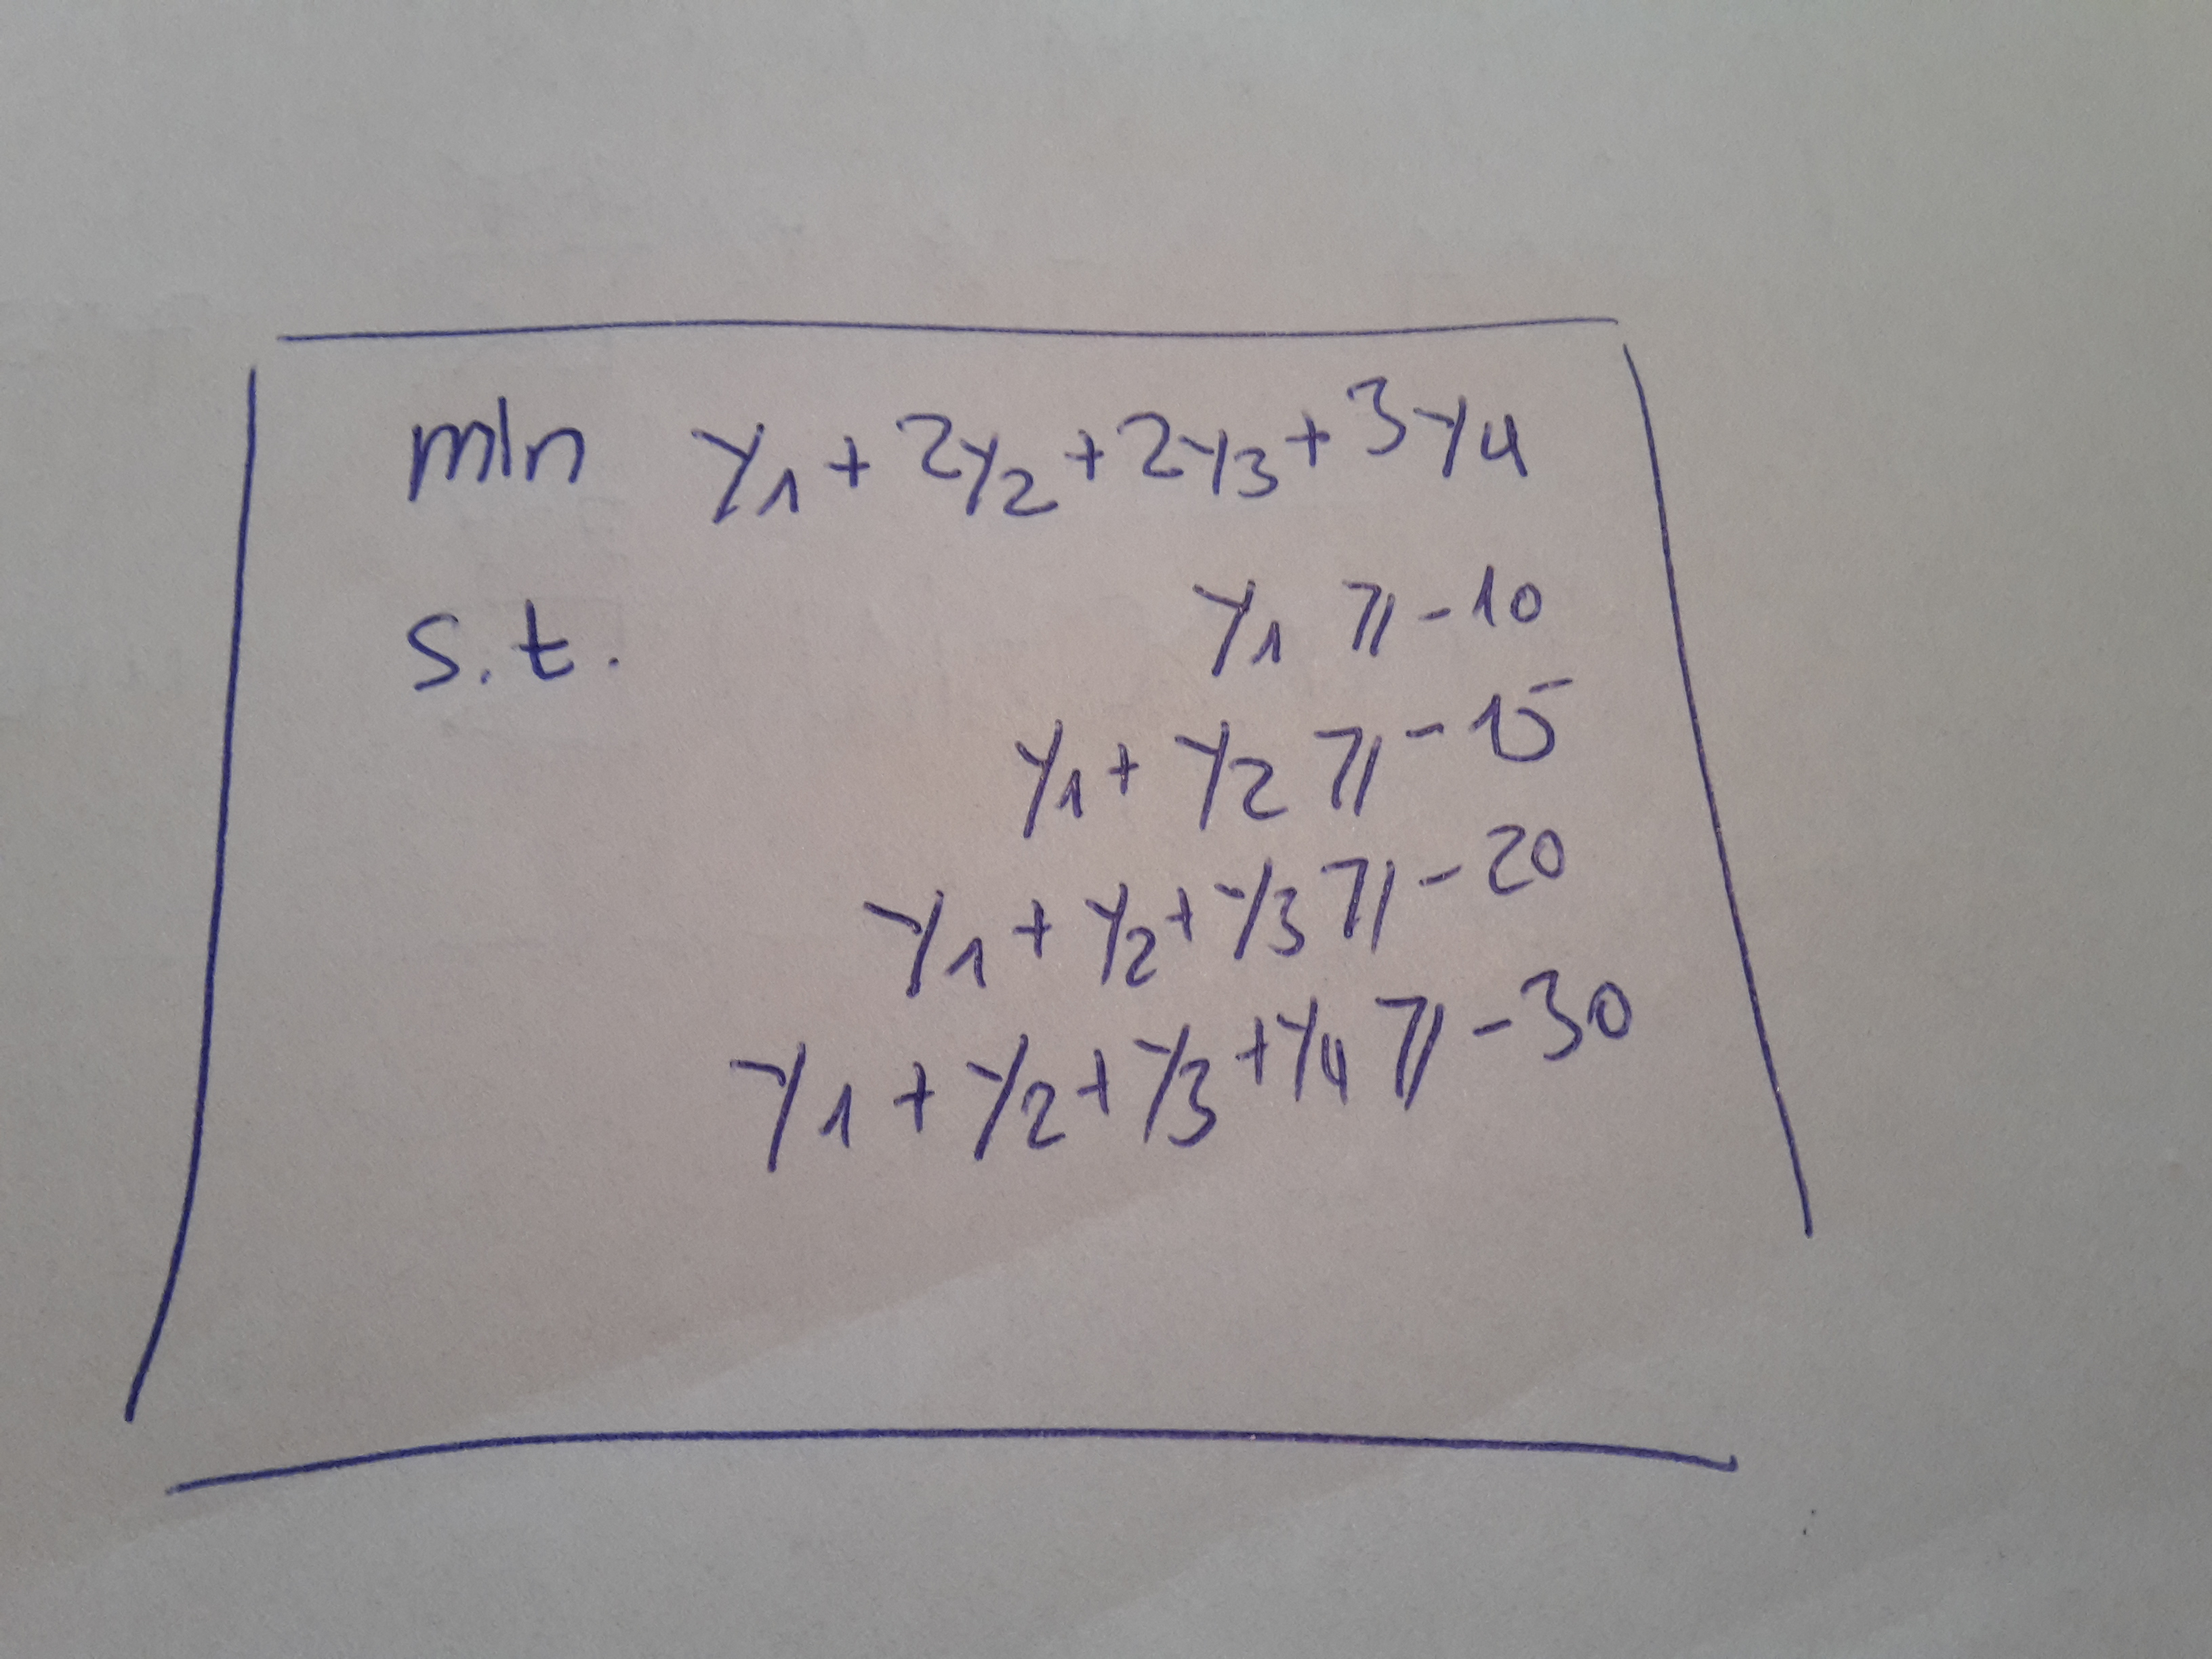 min y₁ + 2y₂ + 2y₃ + 3y₄
s.t. y₁ ⩾ -10
y₁ + y₂ ⩾ -15
y₁ + y₂ + y₃ ⩾ -20
y₁ + y₂ + y₃ + y₄ ⩾ -30